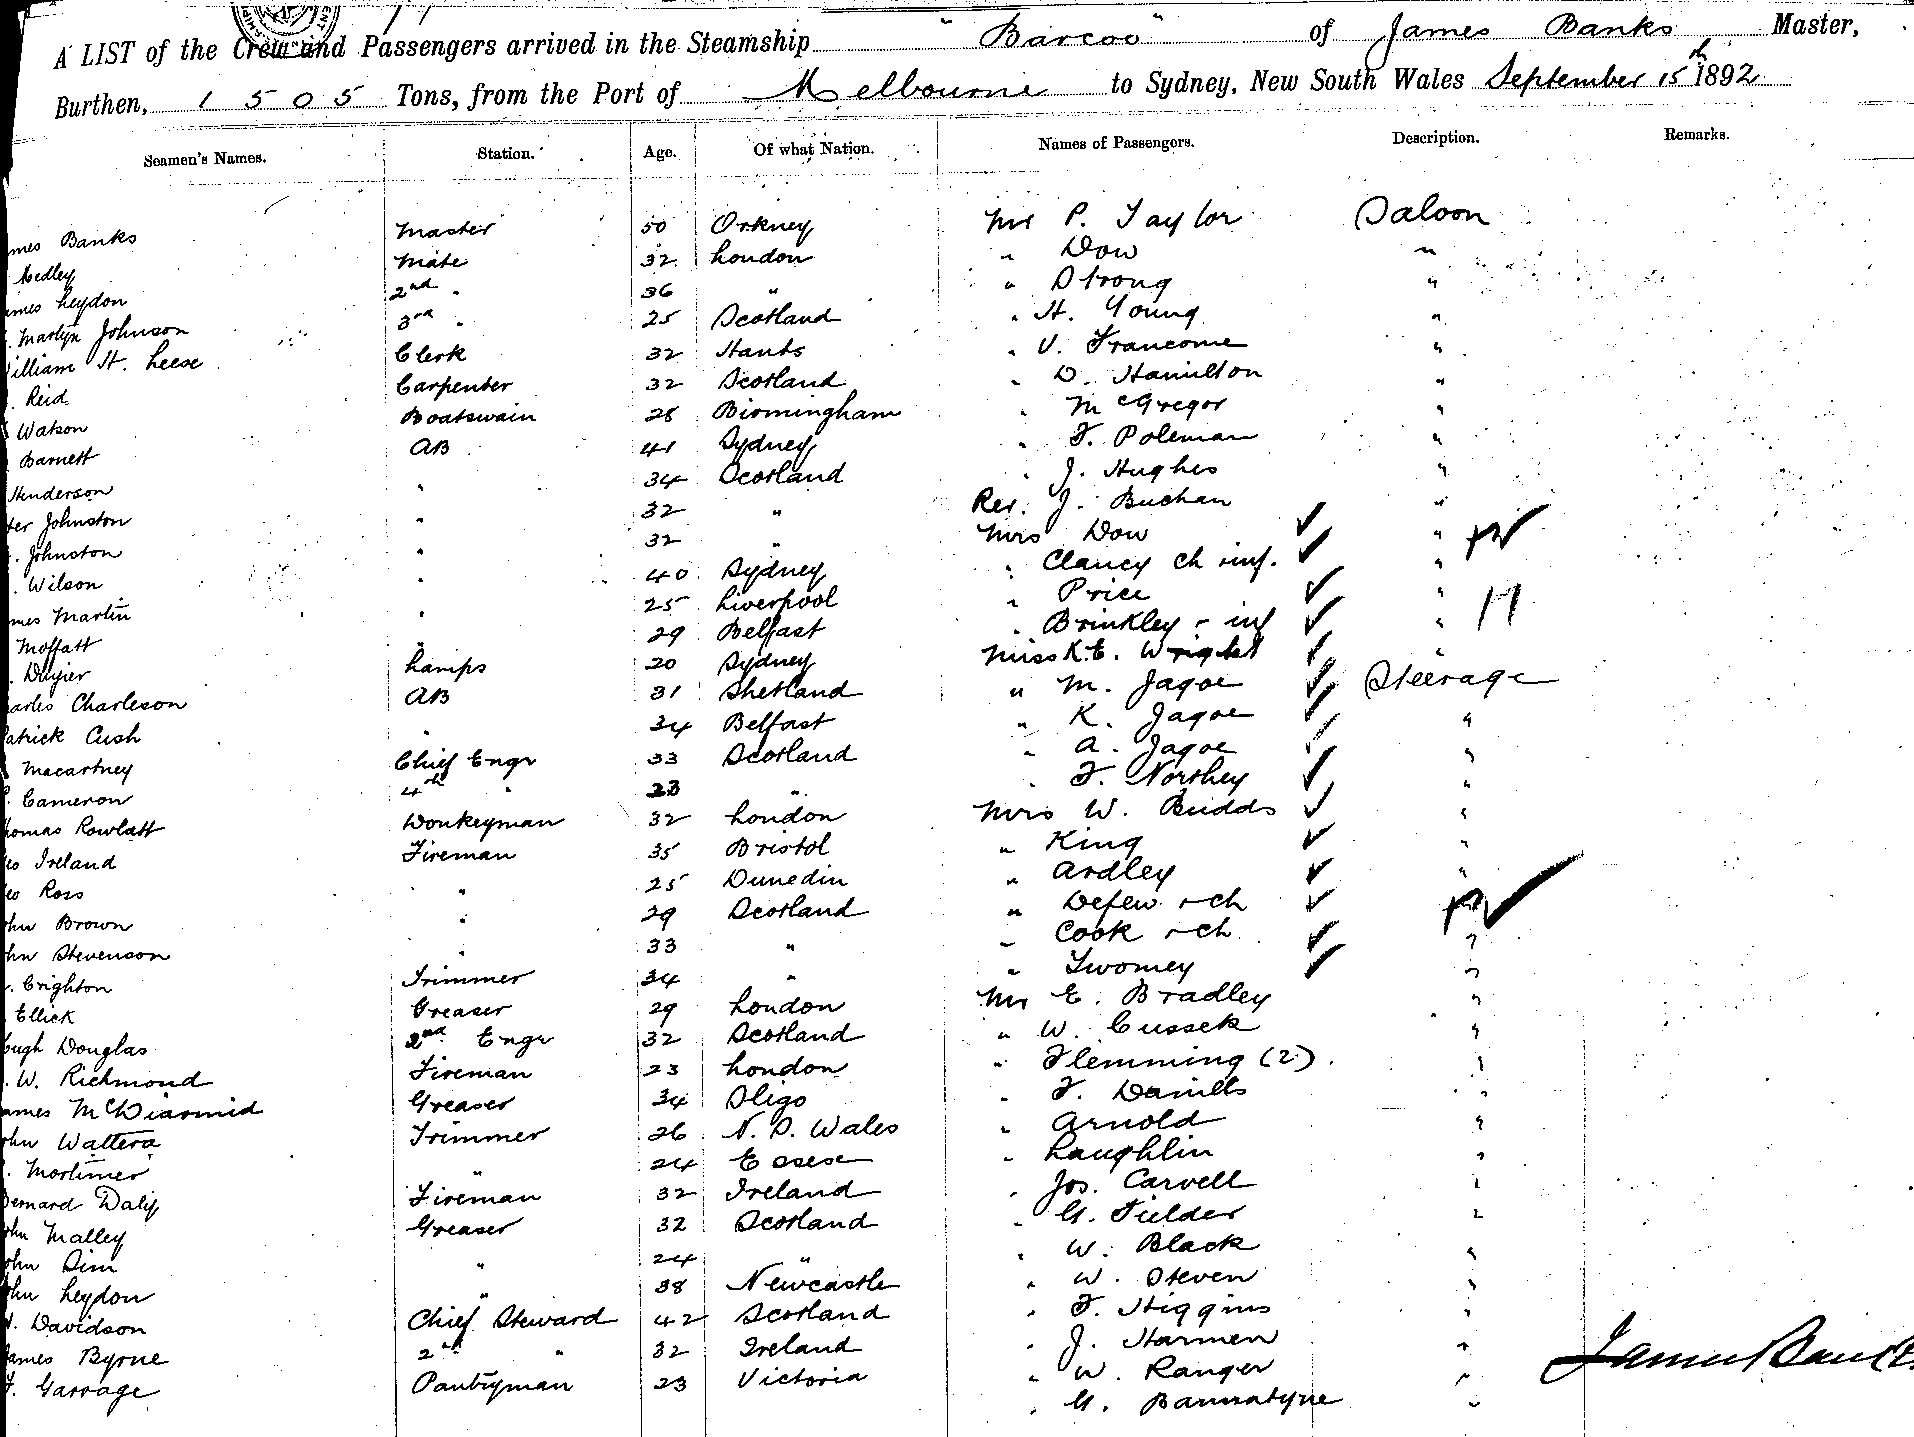 A LIST of the Crew and Passengers arrived in the Steamship "Barcoo" of James Banks Master,
Burthen, 1505 Tons, from the Port of Melbourne to Sydney, New South Wales September 15th 1892
Seamen's Names. Station. Age. Of what Nation. Names of Passengers. Description. Remarks.
mes Banks Master 50 Orkney Mr P. Taylor Saloon
Medley Mate 32 London " Dow "
ames Leydon 2nd " 36 " " Strong "
Martyn Johnson 3rd " 25 Scotland " H. Young "
illiam H. Leese Clerk 32 Hants " V. Francome "
Reid Carpenter 32 Scotland " D. Hamilton "
Watson Boatswain 28 Birmingham " McGregor "
Barnett AB 41 Sydney " F. Poleman "
Henderson " 34 Scotland " J. Hughes "
ter Johnston " 32 " Rev. J. Buchan "
. Johnston " 32 " Mrs Dow "
. Wilson " 40 Sydney " Clancy ch + inf. "
mes Martin " 25 Liverpool " Price "
Moffatt " 29 Belfast " Brinkley + inf " 17
. Dwyer Lamps 20 Sydney Miss K. E. Wright "
arles Charleson AB 31 Shetland " M. Jagoe Steerage
atrick Cush " 34 Belfast " K. Jagoe "
Macartney Chief Engr 33 Scotland " A. Jagoe "
. Cameron 4th " 23 " " F. Northey "
homas Rowlatt Donkeyman 32 London Mrs W. Budds "
eo Ireland Fireman 35 Bristol " King "
eo Ross " 25 Dunedin " Ardley "
ohn Brown " 29 Scotland " Defew + ch "
ohn Stevenson " 33 " " Cook + ch "
. Crighton Trimmer 34 " " Twomey "
Ellick Greaser 29 London Mr E. Bradley "
ough Douglas 2nd Engr 32 Scotland " W. Cussek "
. W. Richmond Fireman 23 London " Flemming (2) "
ames McDiarmid Greaser 34 Sligo " F. Daniells "
ohn Watters Trimmer 26 N. S. Wales " Arnold "
. Mortimer " 24 Essex " Laughlin "
Bernard Daly Fireman 32 Ireland " Jos. Carvell "
ohn Malley Greaser 32 Scotland " G. Fielder "
ohn Sim " 24 " " W. Black "
ohn Leydon " 38 Newcastle " W. Steven "
. Davidson Chief Steward 42 Scotland " F. Higgins "
ames Byrne 2nd " 32 Ireland " J. Harmen "
. Garrage Pantryman 23 Victoria " W. Ranger "
" G. Bannatyne "
James Banks